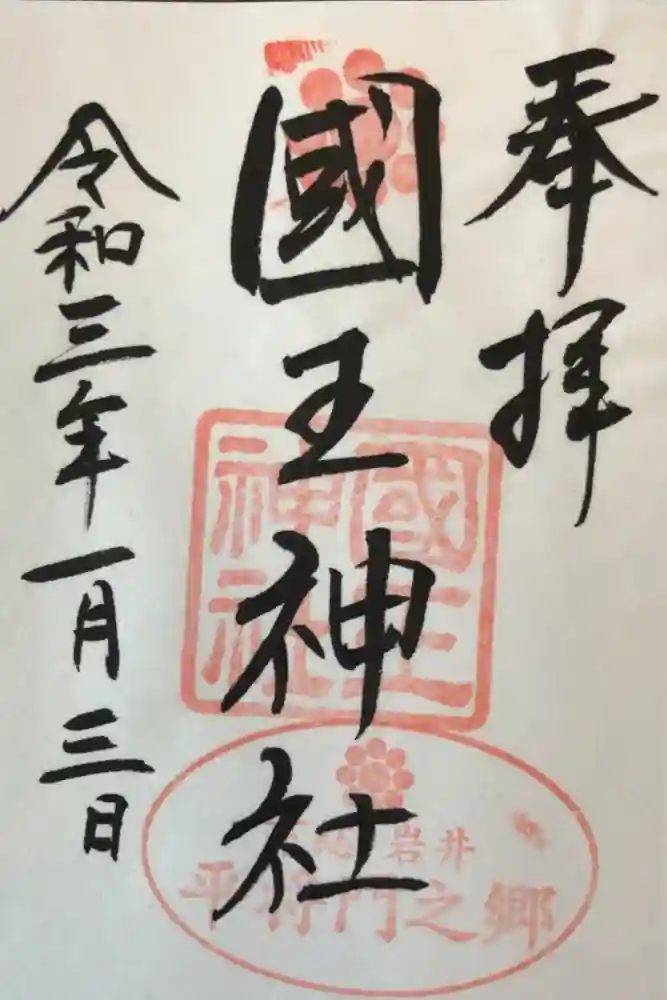 奉拝
國王神社
令和三年一月三日
國王
神社
岩井
平将門之郷